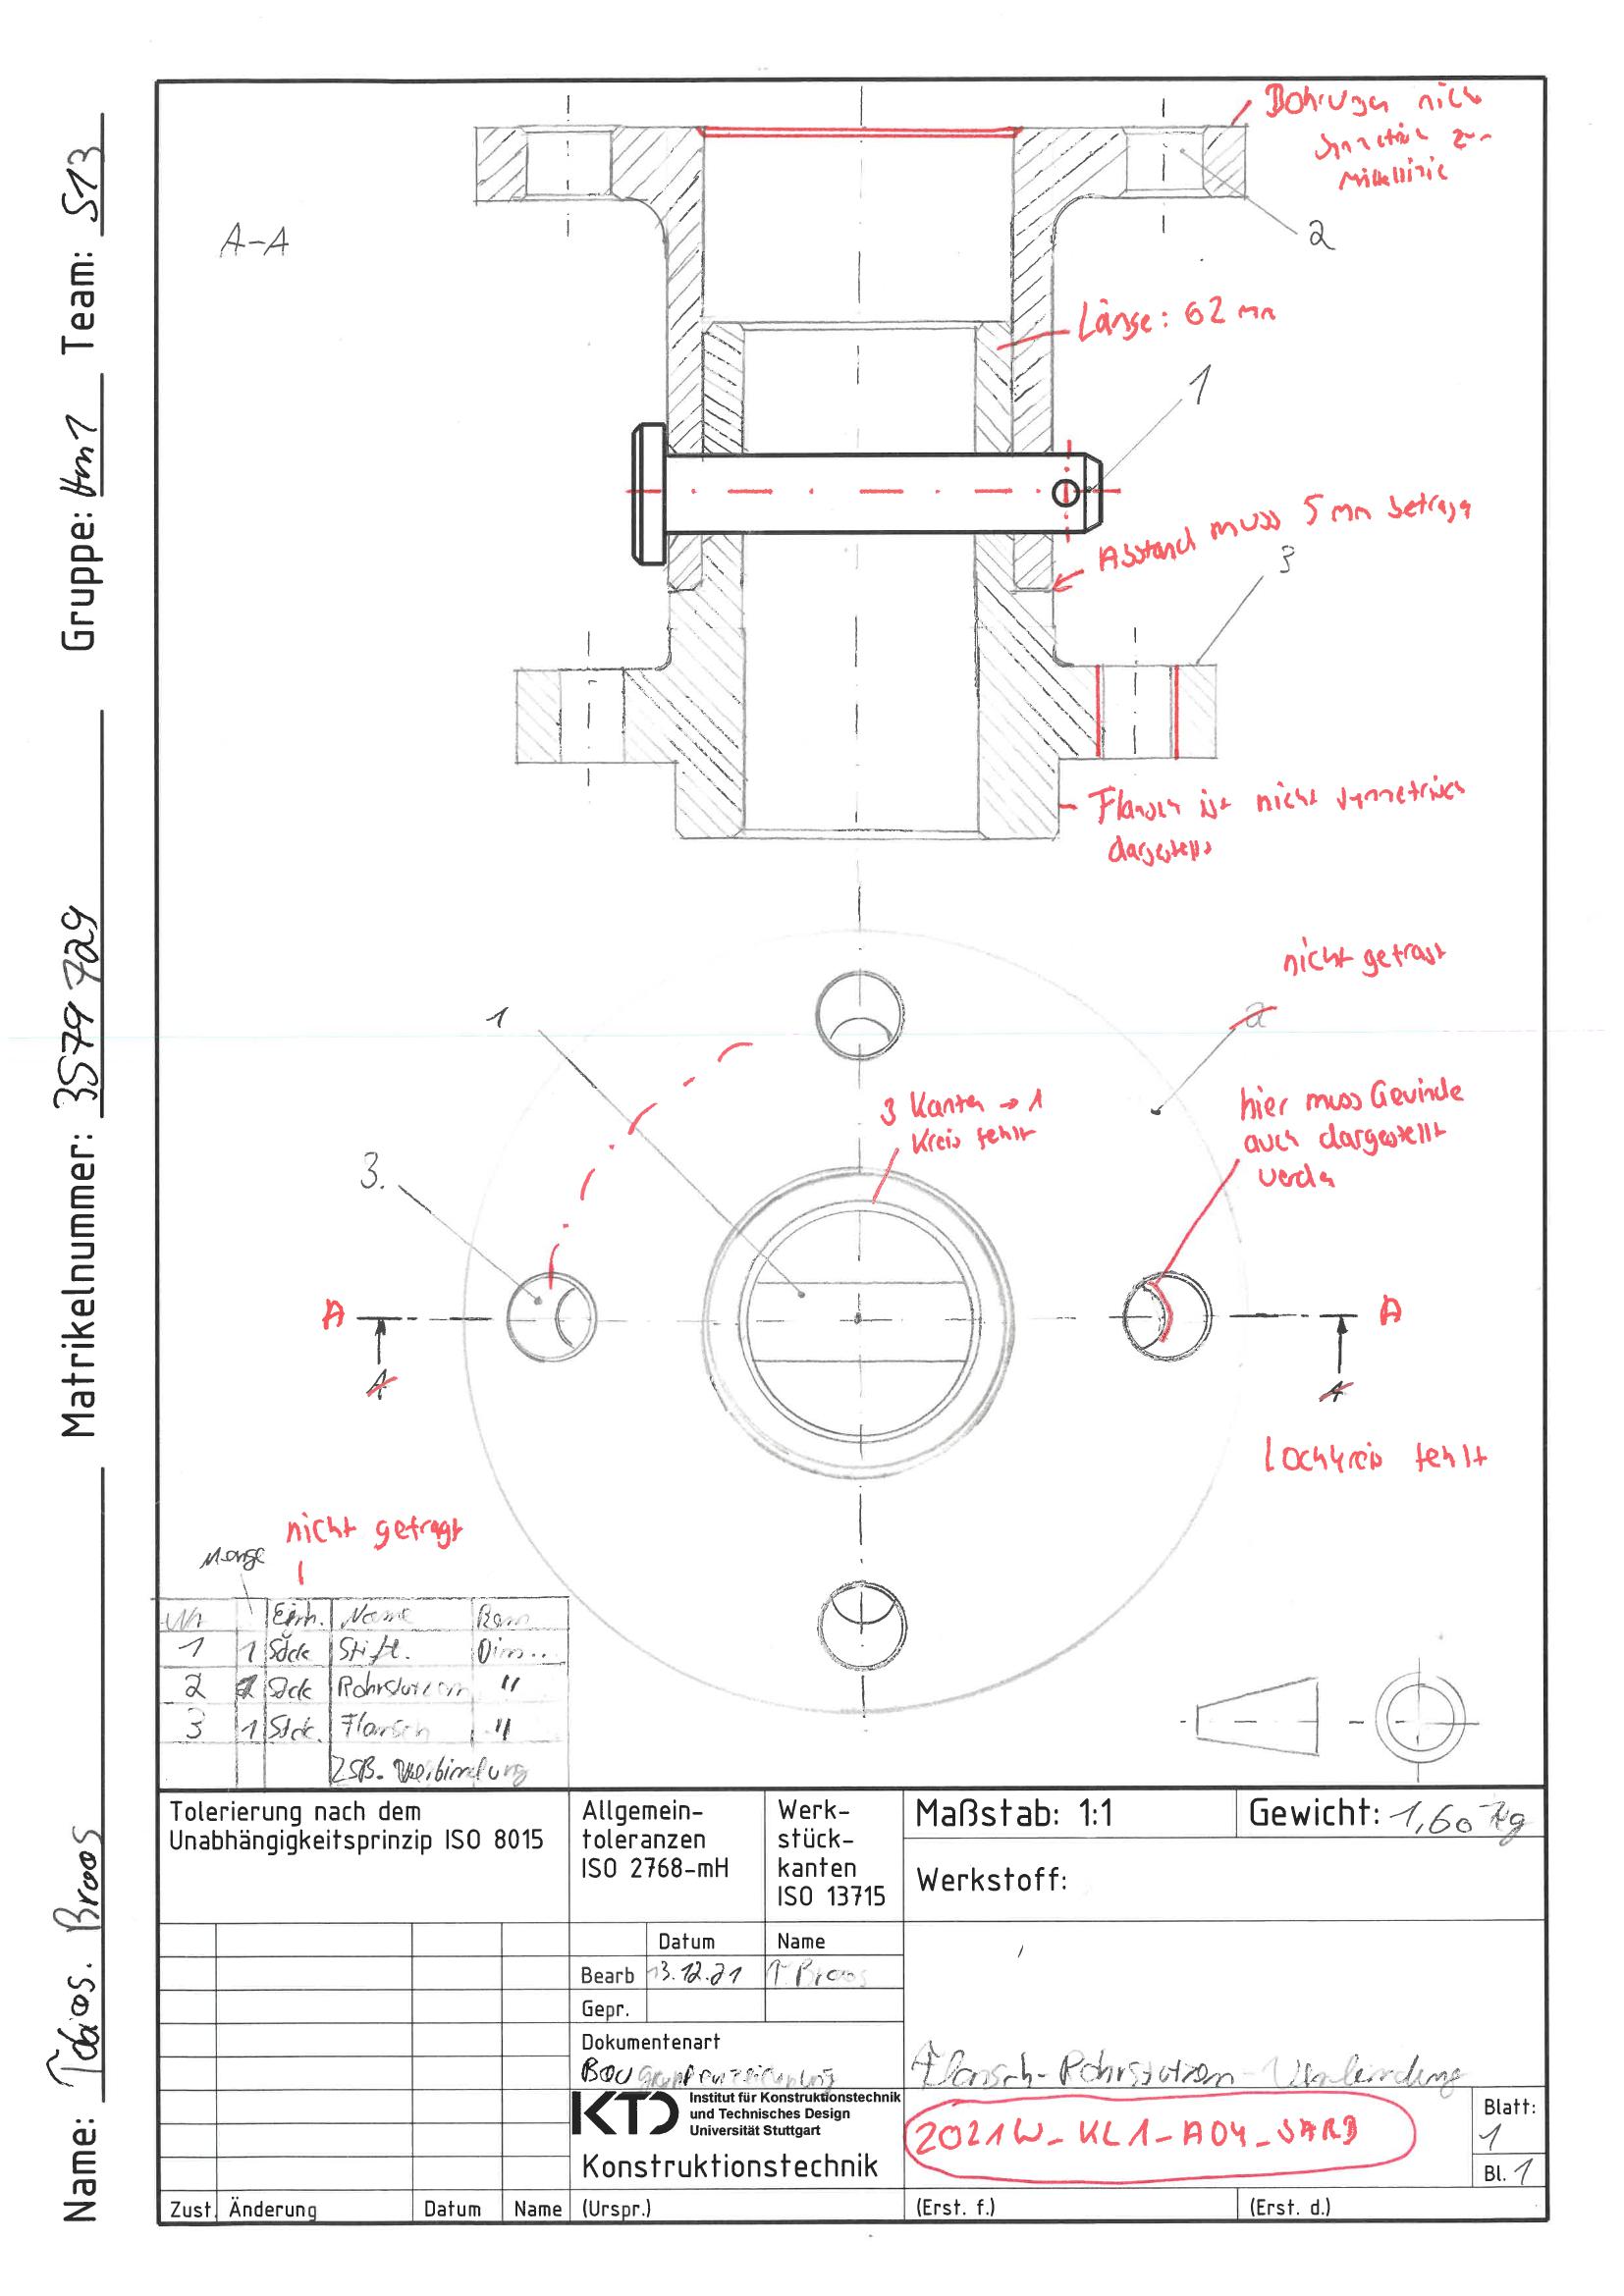 Name: Tobias. Broos Matrikelnummer: 3579729 Gruppe: Hm1 Team: S13
Bohrungen nicht
symmetrisch zur
Mittellinie
A-A
2
Länge: 62 mm
1
Abstand muss 5 mm betragen
3
Flansch ist nicht symmetrisch
dargestellt
nicht gefragt
1
2
3 Kanten → 1
Kreis fehlt
hier muss Gewinde
auch dargestellt
werden
3.
A
A
A
A
Lochkreis fehlt
nicht gefragt
Menge
Nr Einh. Name Bem
1 1 Stck Stift. Dim...
2 1 Stck Rohrstutzen "
3 1 Stck. Flansch "
ZSB. Verbindung
Tolerierung nach dem
Unabhängigkeitsprinzip ISO 8015
Allgemein-
toleranzen
ISO 2768-mH
Werk-
stück-
kanten
ISO 13715
Maßstab: 1:1
Gewicht: 1,60 kg
Werkstoff:
Datum Name
Bearb 13.12.21 T. Broos
Gepr.
Dokumentenart
Baugruppenzeichnung
Flansch-Rohrstutzen-Verbindung
KTD
Institut für Konstruktionstechnik
und Technisches Design
Universität Stuttgart
Konstruktionstechnik
2021W_KL1_A04_SARB
Blatt:
1
Bl. 1
Zust. Änderung Datum Name (Urspr.) (Erst. f.) (Erst. d.)